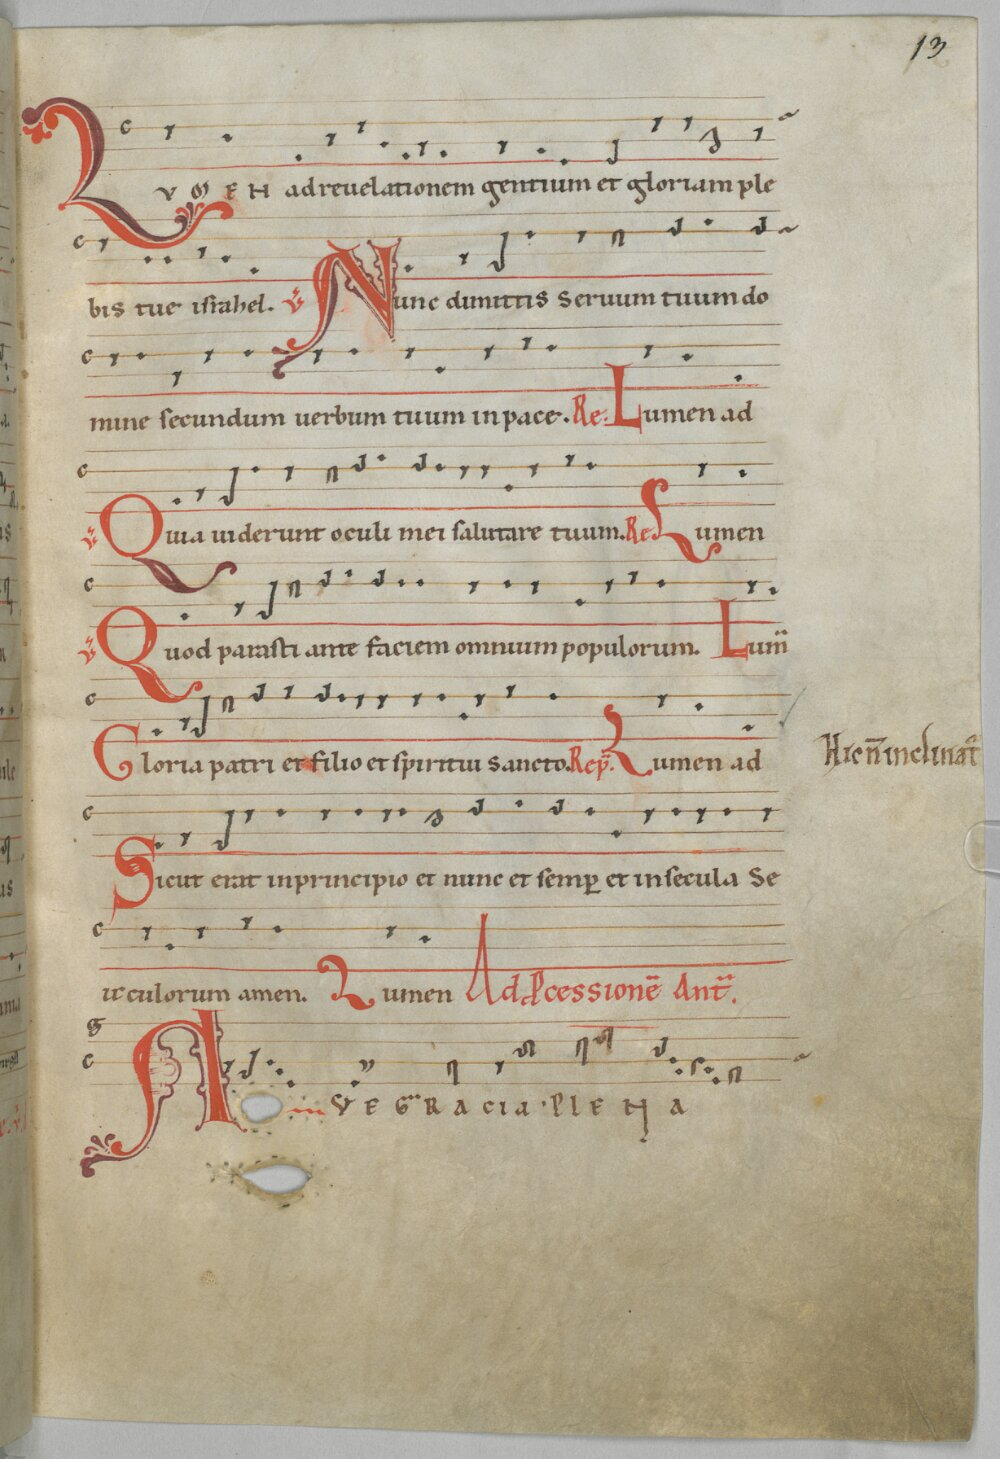 13
Lvmen ad reuelationem gentium et gloriam ple
bis tue israhel. V Nunc dimittis seruum tuum do
mine secundum uerbum tuum in pace. Re. Lumen ad
V Quia uiderunt oculi mei salutare tuum. Re Lumen
V Quod parasti ante faciem omnium populorum. Lum̄
Gloria patri et filio et spiritui sancto. Rep̄. Lumen ad
Hic n̄ inclinat̄
Sicut erat in principio et nunc et semꝑ et in secula se
culorum amen. Lumen Ad ꝓcessionē Ant̄.
Ave gracia plena